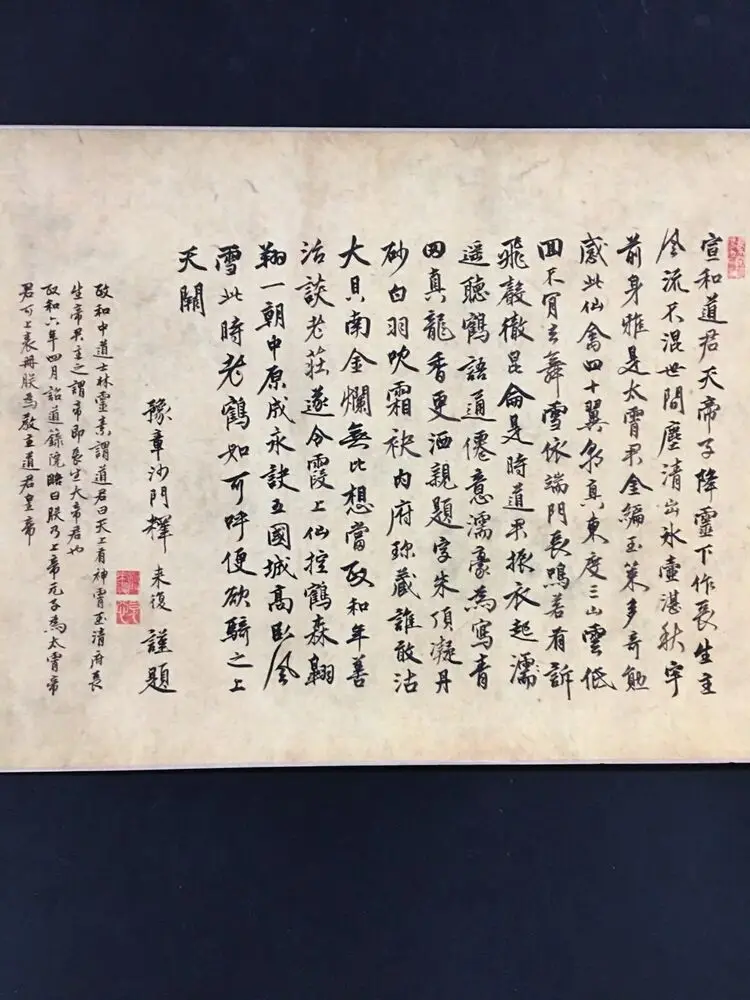 宣和道君天帝子降靈下作長生主
風流不混世間塵清出氷壺湛秋宇
前身雅是太霄君金編玉策多奇勉
感此仙禽四十翼朝真東度三山雲低
回不肯去舞雪依端門長鳴若有訴
飛聲徹昆侖是時道君振衣起濡
遥聽鶴語通僊意濡豪為寫青
田真龍香更洒親題字朱頂凝丹
砂白羽吹霜袂内府珎藏誰敢沽
大貝南金爛無比想當政和年善
治談老莊遂令霞上仙控鶴森翱
翔一朝中原成永訣五國城高卧風
雪此時老鶴如可呼便欲騎之上
天關
豫章沙門釋来復謹題
政和中道士林靈素謂道君曰天上有神霄玉清府長
生帝君主之謂帝即長生大帝君也
政和六年四月詔道錄院略曰朕乃上帝元子為太霄帝
君可上表冊朕為教主道君皇帝